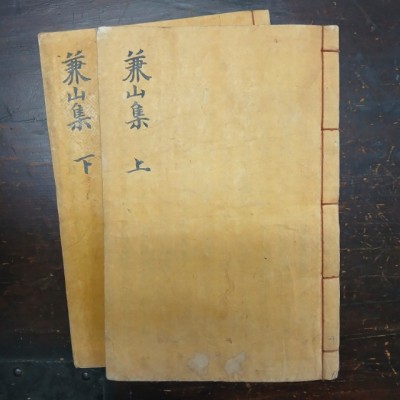 兼山集 上
兼山集 下